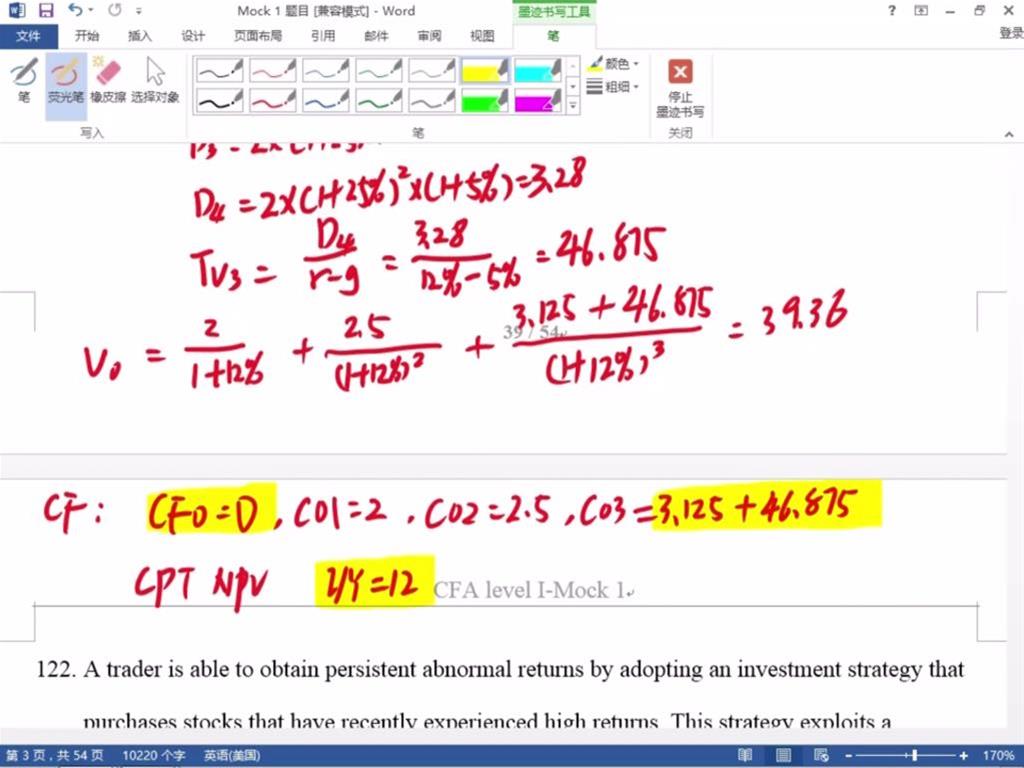 Mock 1 题目 [兼容模式] - Word
墨迹书写工具
?
文件 开始 插入 设计 页面布局 引用 邮件 审阅 视图 笔
登录
笔 荧光笔 橡皮擦 选择对象
颜色
粗细
停止
墨迹书写
写入 笔 关闭
D4 = 2×(1+25%)²×(1+5%)=3.28
TV3 = D4 / r-g = 3.28 / 12%-5% = 46.875
V0 = 2 / 1+12% + 2.5 / (1+12%)² + 3.125+46.875 / (1+12%)³ = 39.36
39 / 54
CF: CF0=0, C01=2, C02=2.5, C03=3.125+46.875
CPT NPV I/Y=12
CFA level I-Mock 1
122. A trader is able to obtain persistent abnormal returns by adopting an investment strategy that
purchases stocks that have recently experienced high returns. This strategy exploits a
第 3 页，共 54 页 10220 个字 英语(美国) 170%